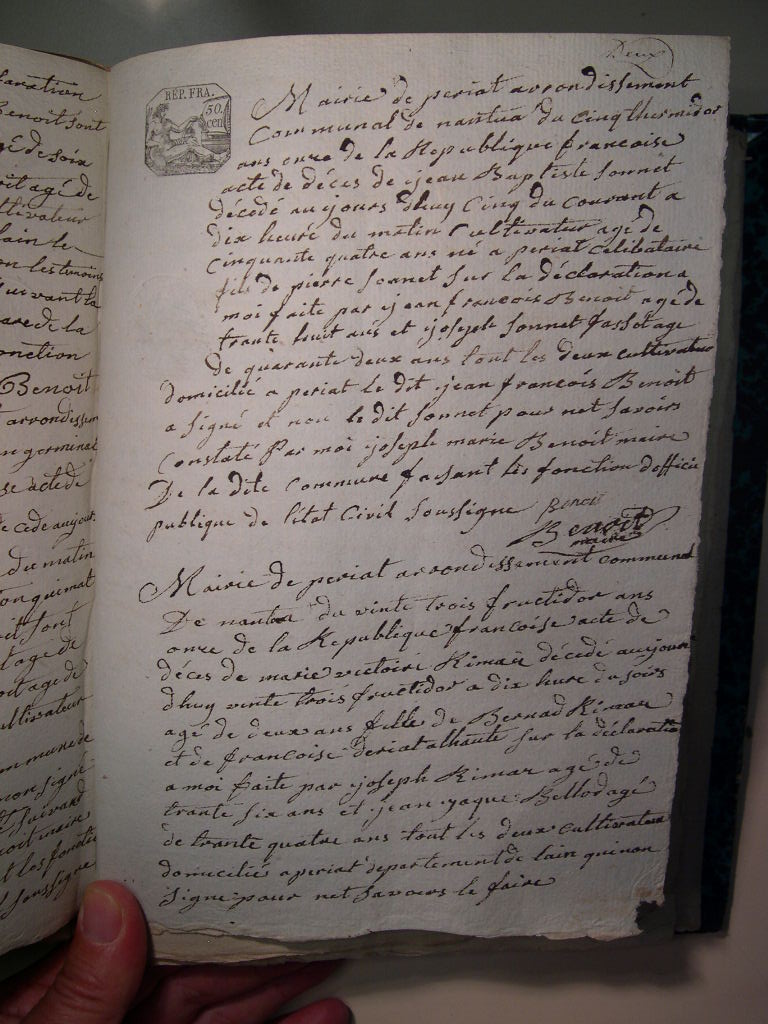 Deux
REP. FRA.
50.
cen
Mairie de periat arrondissement
Communal de nantua du cinq thermidor
ans onze de la Republique francoise
acte de déces de jean Baptiste Sonnet
décédé au jours dhuy Cinq du Courant a
dix heure du matin Cultivateur agé de
Cinquante quatre ans né a periat Célibataire
fis de pierre Sonnet Sur la déclaration a
moi faite par jean francois Benoit agé de
trante huit ans et joseph Sonnet agé
de quarante deux ans tout les deux cultivateur
domicilié a periat le dit jean francois Benoit
a Signé et non le dit Sonnet pour net Savoirs
Constaté Par moi joseph marie Benoit maire
De la dite Commune faisant les fonction dofficié
publique de létat Civil Soussigne Benoit
Benoit
maire
Mairie de periat arrondissement communal
De nantua du vinte trois fructidor ans
onze de la Republique francoise acte de
déces de marie victoire décédé aujour
dhuy vinte trois fructidor a dix heure du Soirs
agé de deux ans fille de Bernad
et de francoise Sur la déclaration
a moi faite par joseph agé de
trante Six ans et jean jaque agé
de trante quatre ans tout les deux cultivateur
domicilié a periat departement de lain qui non
Signe pour net Savoirs le faire
aration
Benoit Sont
agé de
ltivateur
lain le
on les temoins
Suivant la
are de la
onction
Benoit
arrondissem
n germinal
se acte de
e cede aujour
du matin
agé de
agé de
ultivateur
mmune de
non signé
oit maire
t les fonction
Soussigne